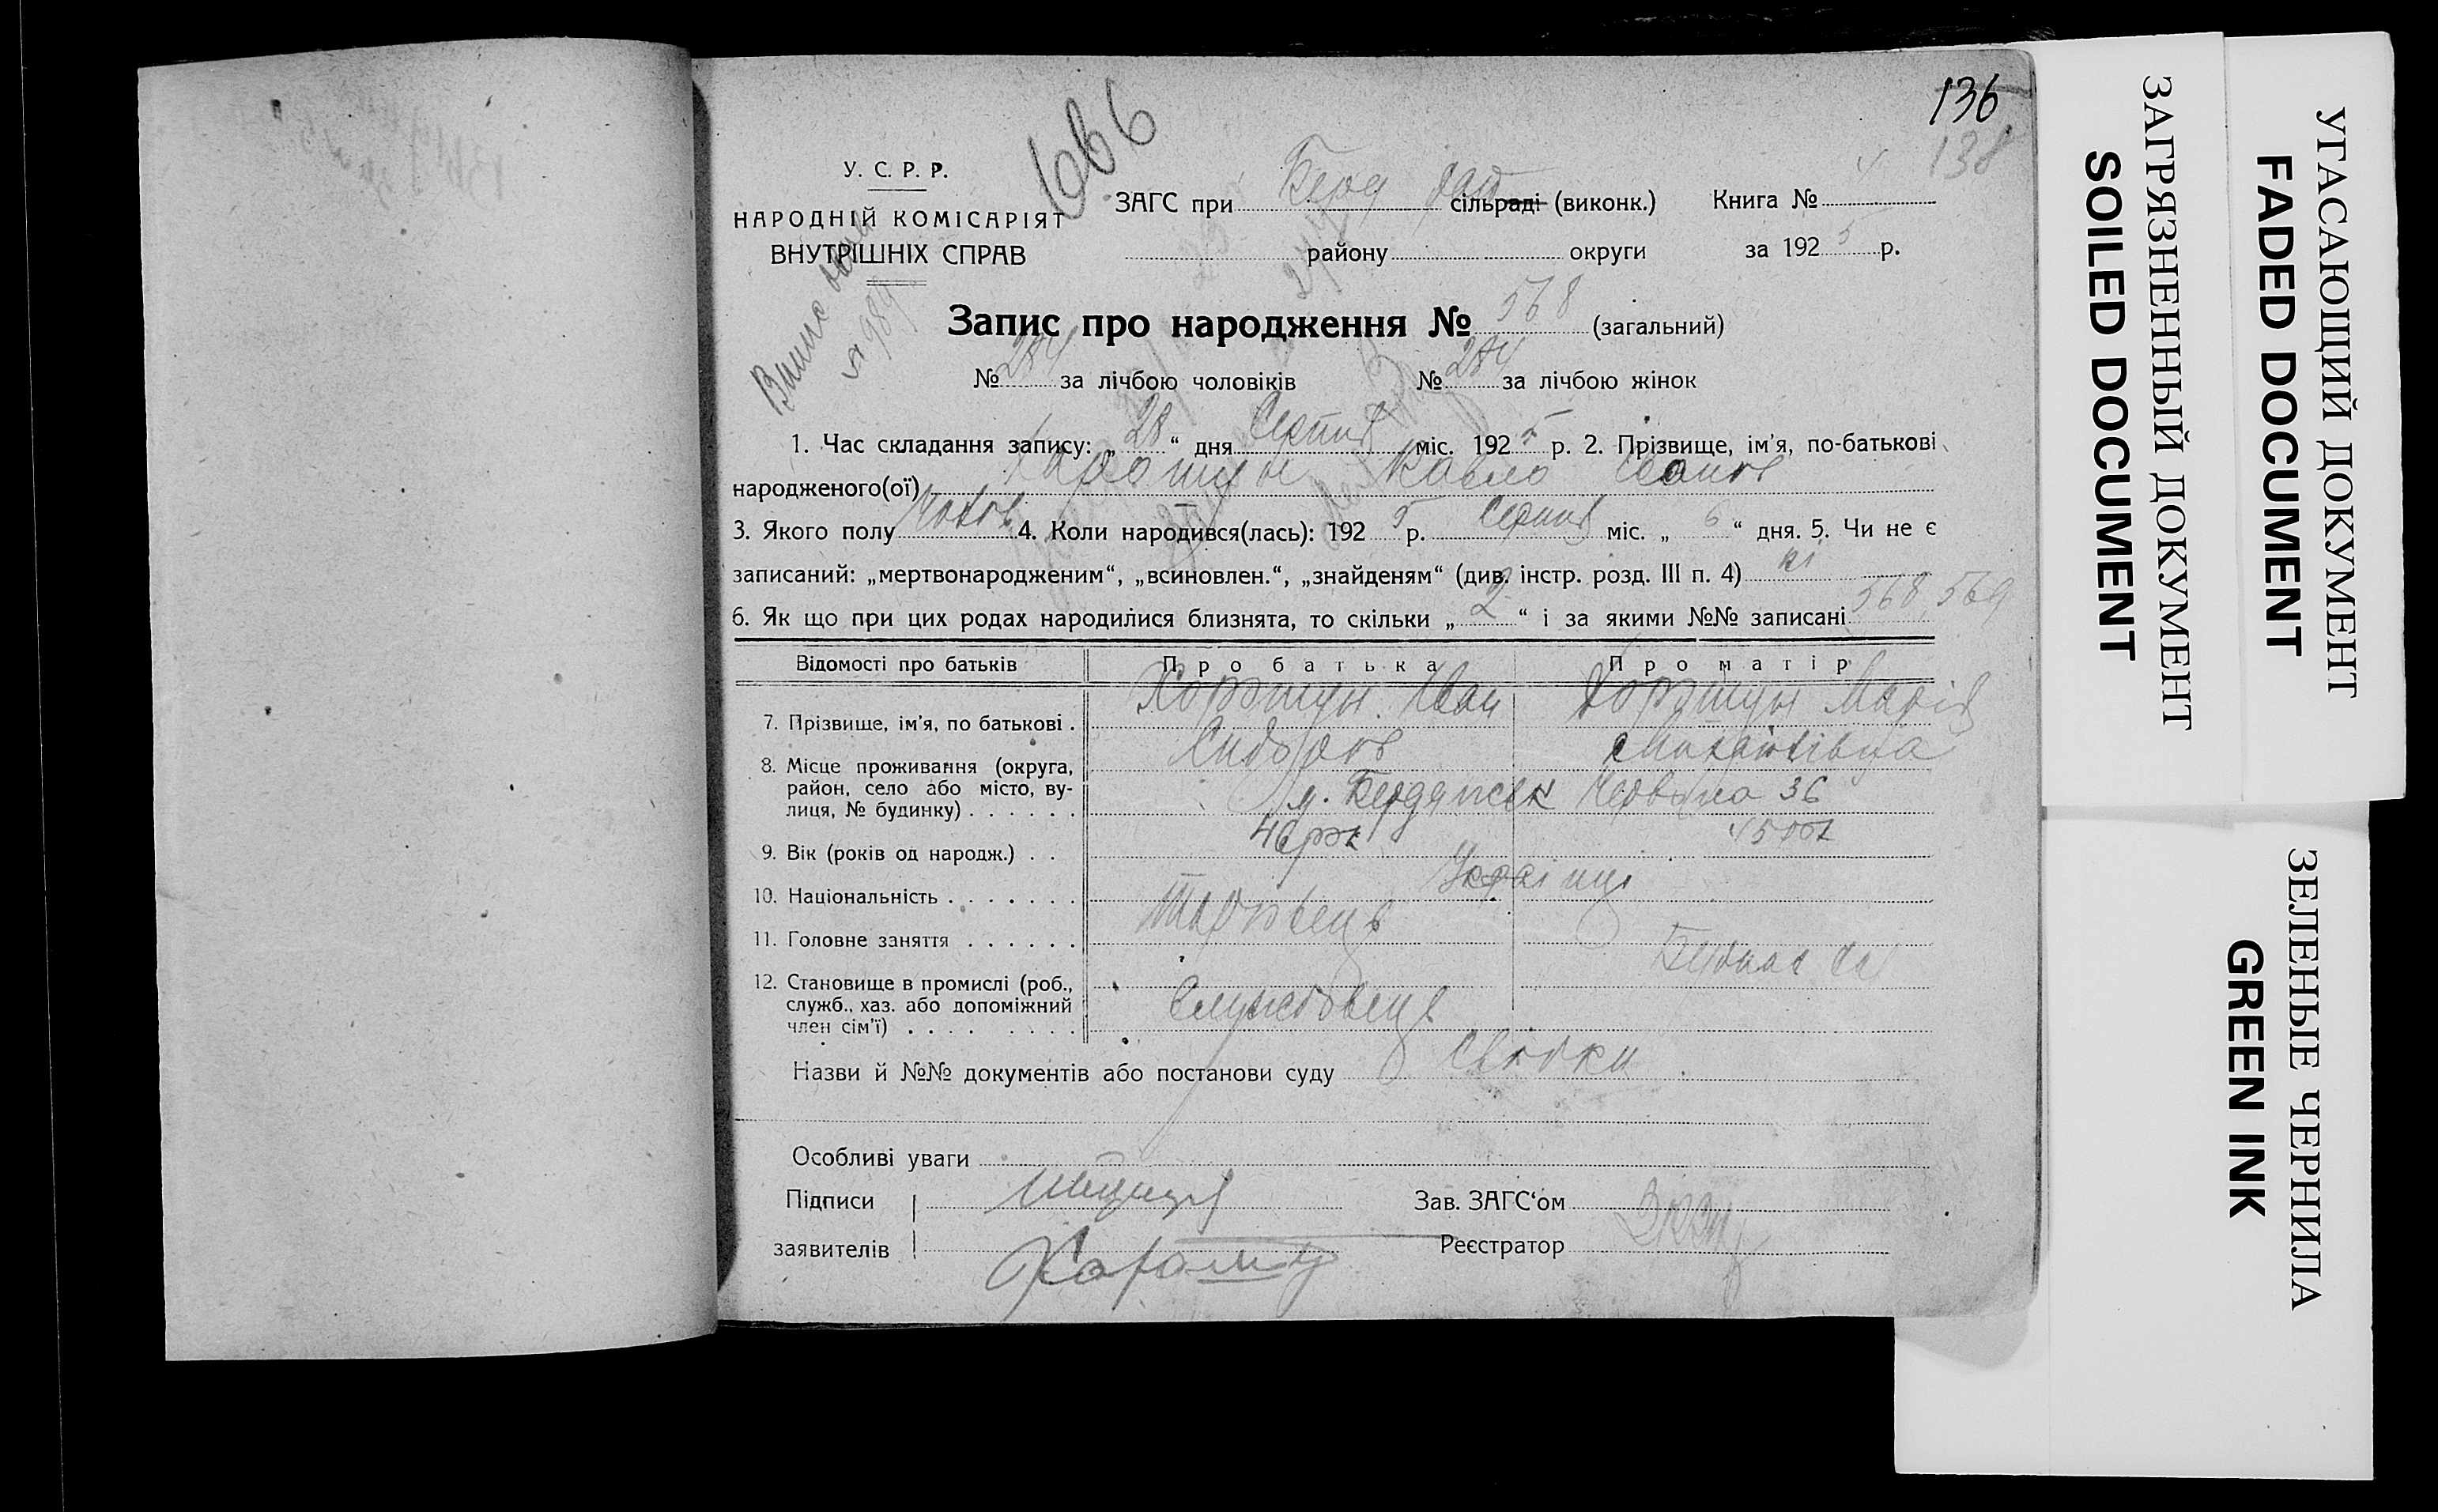 136
138
666
У. С. Р. Р.
НАРОДНІЙ КОМІСАРІЯТ
ВНУТРІШНІХ СПРАВ
ЗАГС при Берд рай сільраді (виконк.) Книга № 4
району округи за 1925 р.
Запис про народження № 568 (загальний)
№ 284 за лічбою чоловіків № 284 за лічбою жінок
1. Час складання запису: „28“ дня Серпня міс. 1925 р. 2. Прізвище, ім'я, по-батькові
народженого(ої) Павло
3. Якого полу 4. Коли народився(лась): 1925 р. Серпня міс. „6“ дня. 5. Чи не є
записаний: „мертвонародженим“, „всиновлен.“, „знайденям“ (див. інстр. розд. III п. 4) ні
6. Як що при цих родах народилися близнята, то скільки „2“ і за якими №№ записані 568, 569
Відомості про батьків Про батька Про матір
7. Прізвище, ім'я, по батькові . Іван Марія
Сидоров Михайлівна
8. Місце проживання (округа,
район, село або місто, ву-
лиця, № будинку) . . . . . . м. Бердянськ Червона 36
9. Вік (років од народж.) . . 46 рок 45 рок
10. Національність . . . . . . . Українці
11. Головне заняття . . . . . .
12. Становище в промислі (роб.,
служб., хаз. або допоміжний
член сім'ї) . . . . . . . . Службовець
Назви й №№ документів або постанови суду
Особливі уваги
Підписи Зав. ЗАГС'ом
заявителів Реєстратор
ЗАГРЯЗНЕННЫЙ ДОКУМЕНТ
SOILED DOCUMENT
УГАСАЮЩИЙ ДОКУМЕНТ
FADED DOCUMENT
ЗЕЛЕНЫЕ ЧЕРНИЛА
GREEN INK